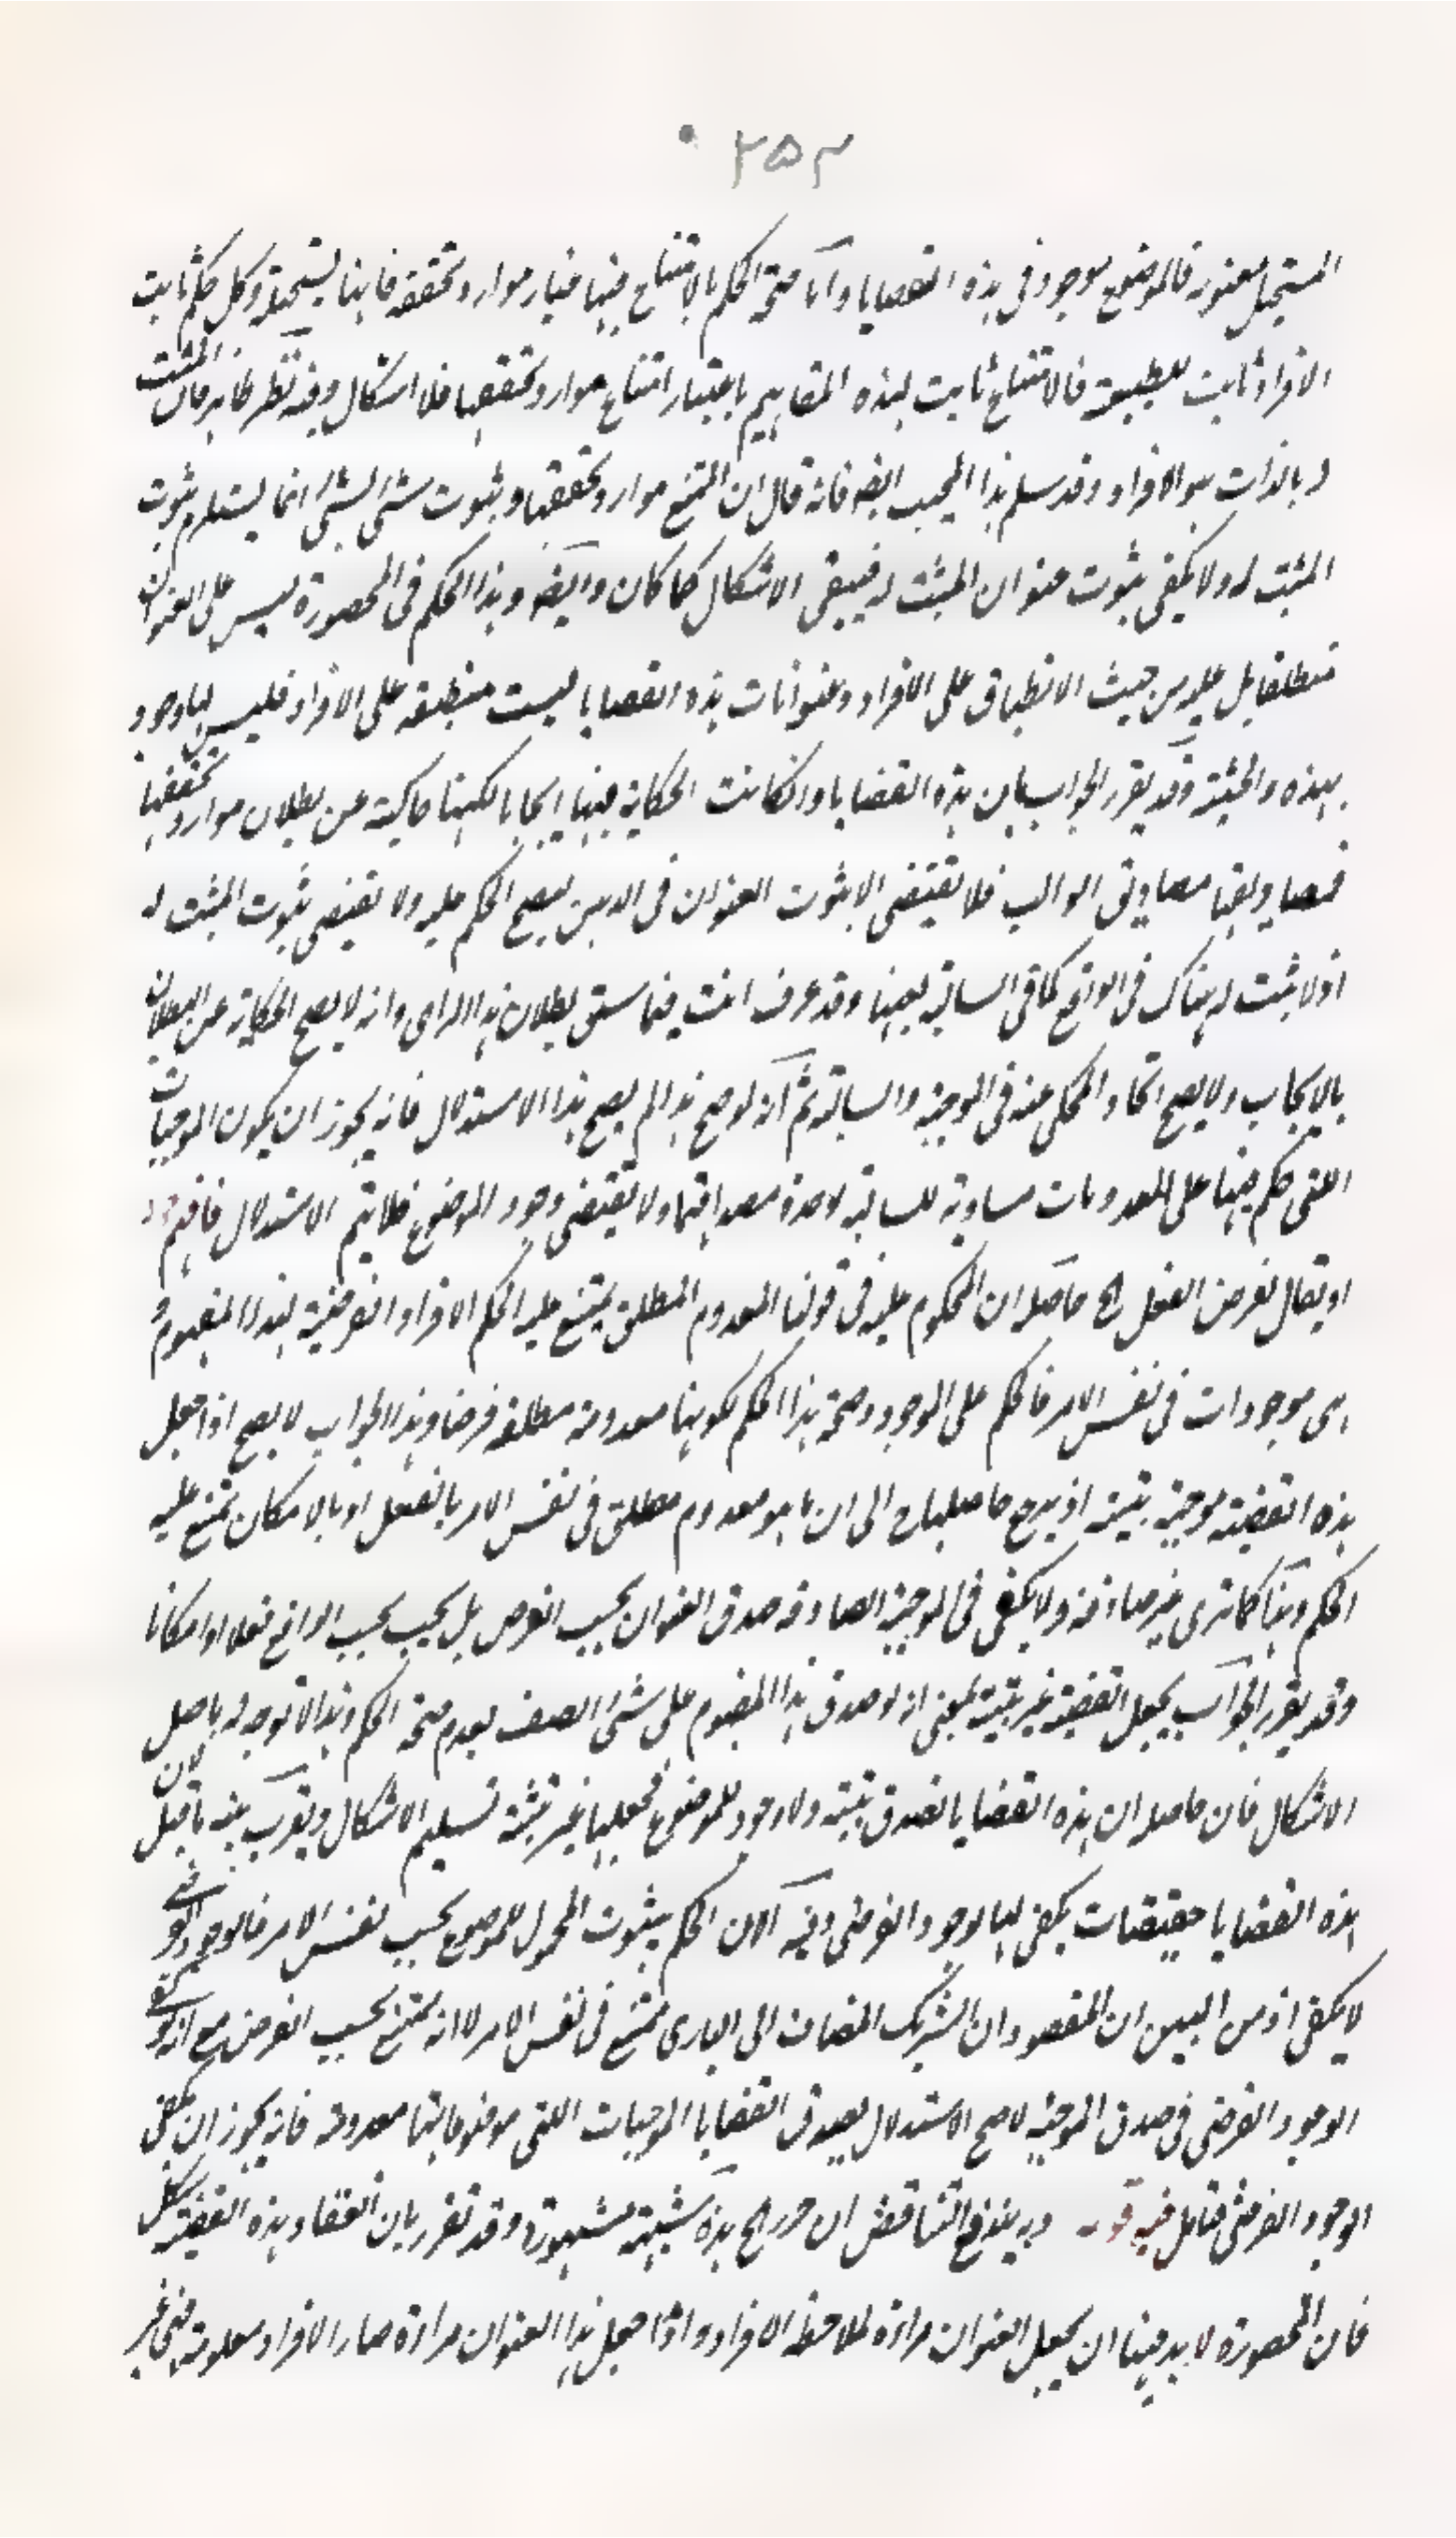 ۲۵۳
المستحيل معنونه فالموضوع موجود فى هذه القضايا واما صحة الحكم بالامتناع فيها فباعتبار موارد تحققه فانها مستحيلة وكل حكم ثابت
الافراد ثابت للطبيعة فالامتناع ثابت لهذه المفاهيم باعتبار امتناع موارد تحققها فلا اشكال وفيه نظر ظاهر فان المثبت
له بالذات هو الافراد وقد سلم هذا المجيب ايضه فانه قال ان الممتنع موارد تحققها وثبوت شئ لشئ انما يستلزم ثبوت
المثبت له ولا يكفى ثبوت عنوان المثبت له فيبقى الاشكال كما كان وايضه وهذا الحكم فى المحصورة ليس على العنوان
مطلقا بل عليه من حيث الانطباق على الافراد وعنوانات هذه القضايا ليست منطبقه على الافراد فليس لها وجود
بهذه الحيثية وقد يقرر الجواب بان هذه القضايا وان كانت الحكاية فيها ايجابا لكنها حاكية عن بطلان موارد تحققها
فمصاديقها مصاديق السوالب فلا يقتضى الا ثبوت العنوان فى الذهن ليصح الحكم عليه ولا يقتضى ثبوت المثبت له
اذ لا مثبت له هناك فى الواقع كما فى السالبة بعينها وقد عرفت انت فيما سبق بطلان هذا الراى وانه لا يصح الحكاية عن البطلان
بالايجاب ولا يصح اتحاد المحكى عنه فى الموجبة والسالبة ثم انه لو صح هذا لم يصح هذا الاستدلال فانه يجوز ان يكون الموجبات
التى حكم فيها على المعدومات مساوية للسالبة لوحدة مصداقهما ولا يقتضى وجود الموضوع فلا يتم الاستدلال فافهم
او يقال بفرض العقل الخ حاصله ان المحكوم عليه فى قولنا المعدوم المطلق يمتنع عليه الحكم الافراد الفرضية لهذا المفهوم
هى موجودات فى نفس الامر فالحكم على الموجود وصحة هذا الحكم لكونها معدومة مطلقة فرضا وهذا الجواب لا يصح اذا جعل
هذه القضية موجبة بتية اذ يرجع حاصلها ح الى ان ما هو معدوم مطلق فى نفس الامر بالفعل او بالامكان يمتنع عليه
الحكم وهنا كما ترى غير صادقة ولا يكفى فى الموجبة الصادقة صدق العنوان بحسب الفرض بل يجب بحسب الواقع فعلا او امكانا
وقد يقرر الجواب بجعل القضية غير بتية بمعنى انه لو صدق هذا المفهوم على شئ اتصف بعدم صحة الحكم وهذا لا توجه له باصل
الاشكال فان حاصله ان هذه القضايا تصدق بتية ولا وجود للموضوع فجعلها غير بتية تسليم الاشكال ويقرب منه ما قيل ان
هذه القضايا حقيقيات يكفى لها الوجود الفرضى وفيه ان الحكم بثبوت المحمول للموضوع بحسب نفس الامر فالوجود الفرضى
لا يكفى اذ من البين ان المقصود ان الشريك المضاف الى البارى ممتنع فى نفس الامر لا انه يمتنع بحسب الفرض مع انه لو كفى
الوجود الفرضى فى صدق الموجبة لا صح الاستدلال بصدق القضايا الموجبات التى موضوعاتها معدومة فانه يجوز ان يكفى
الوجود الفرضى فتامل فيه قوله وبه يندفع التناقض ان حرر الخ هذه شبهة مشهورة وقد تقرر بان انعقاد هذه القضية مشكل
فان المحصورة لا بد فيها ان يجعل العنوان مرآة لملاحظة الافراد واذا جعل هذا العنوان مرآة صار الافراد معلومة فهى غير